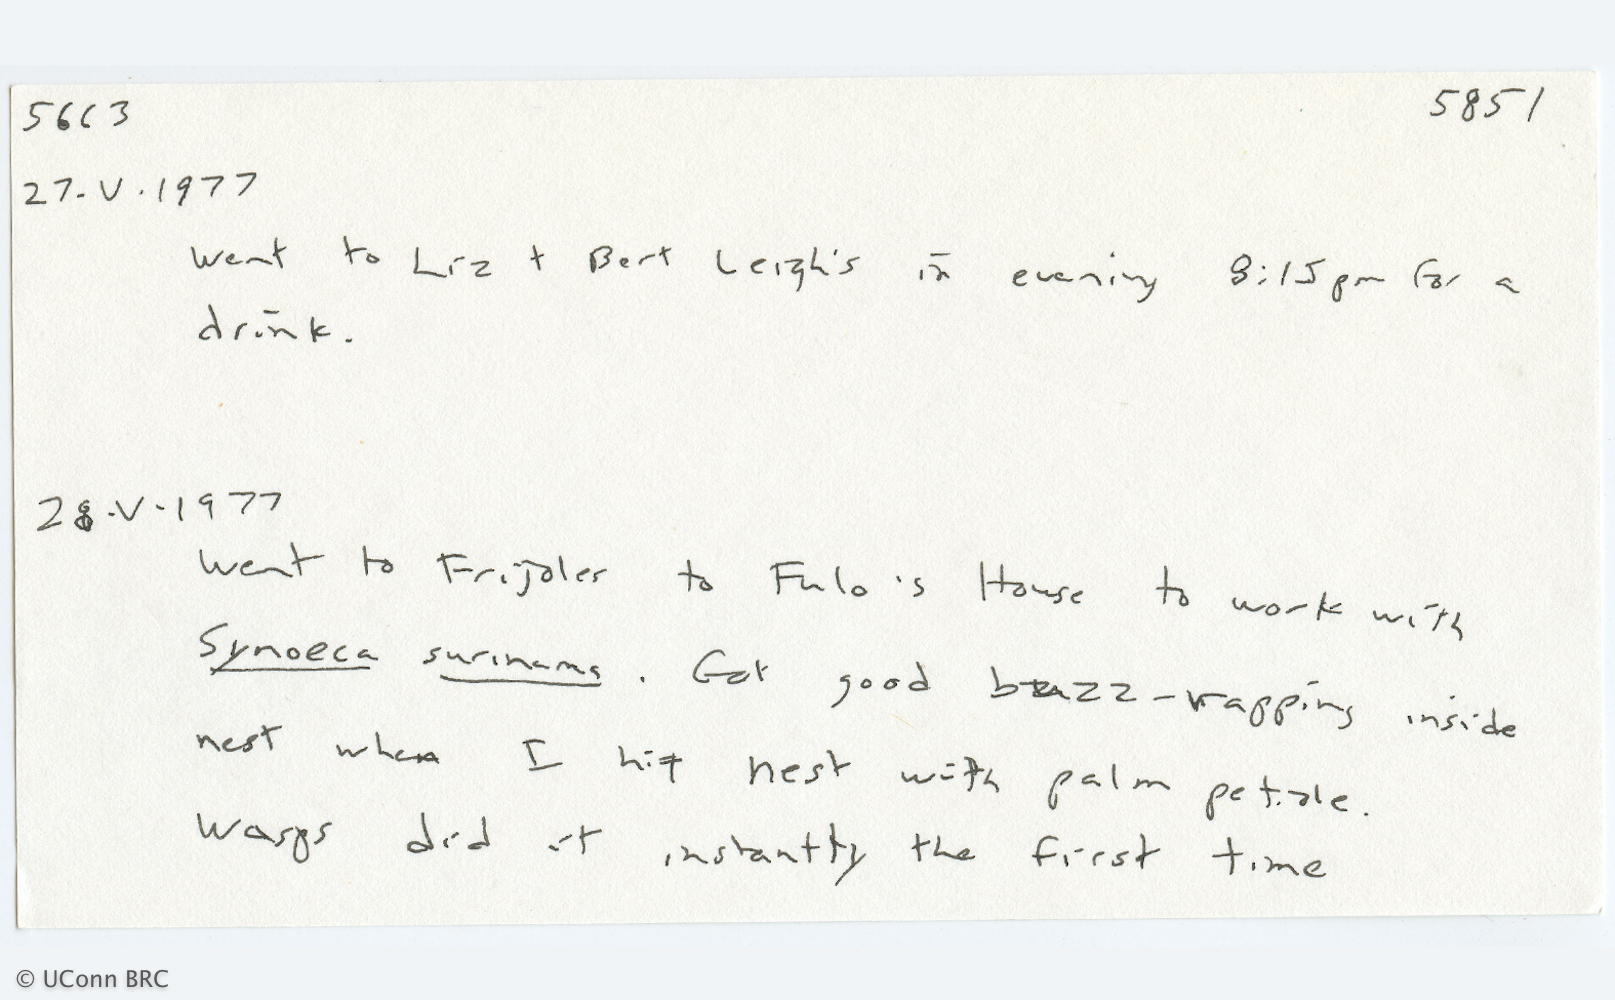 5663 5851
27-V.1977
Went to Liz + Bert Leigh's in evening 8:15pm for a
drink.
28.V.1977
Went to Frijoles to Fulo's House to work with
Synoeca surinama. Got good buzz-rapping inside
nest when I hit nest with palm petiole.
Wasps did it instantly the first time
© UConn BRC